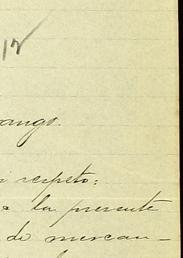 12
ango.
respeto:
a la presente
de mercan-